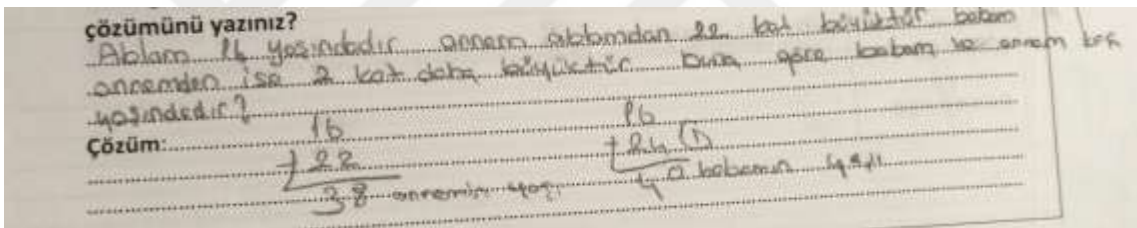 çözümünü yazınız?
Ablam 16 yaşındadır annem ablamdan 22 kat büyüktür babam
annemden ise 2 kat daha büyüktür buna göre babam ve annem kaç
yaşındedir?
Çözüm: 16 16
+22 +24
38 annemin yaşı 40 babamın yaşı